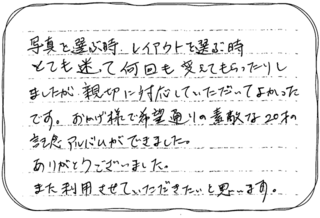 写真を選ぶ時 レイアウトを選ぶ時
とても迷て何回も変えてもらったりし
ましたが親切に対応していただいてよかった
です。おかげ様で希望通りの素敵な20才の
記念アルバムができました。
ありがとうございました。
また利用させていただきたいと思います。